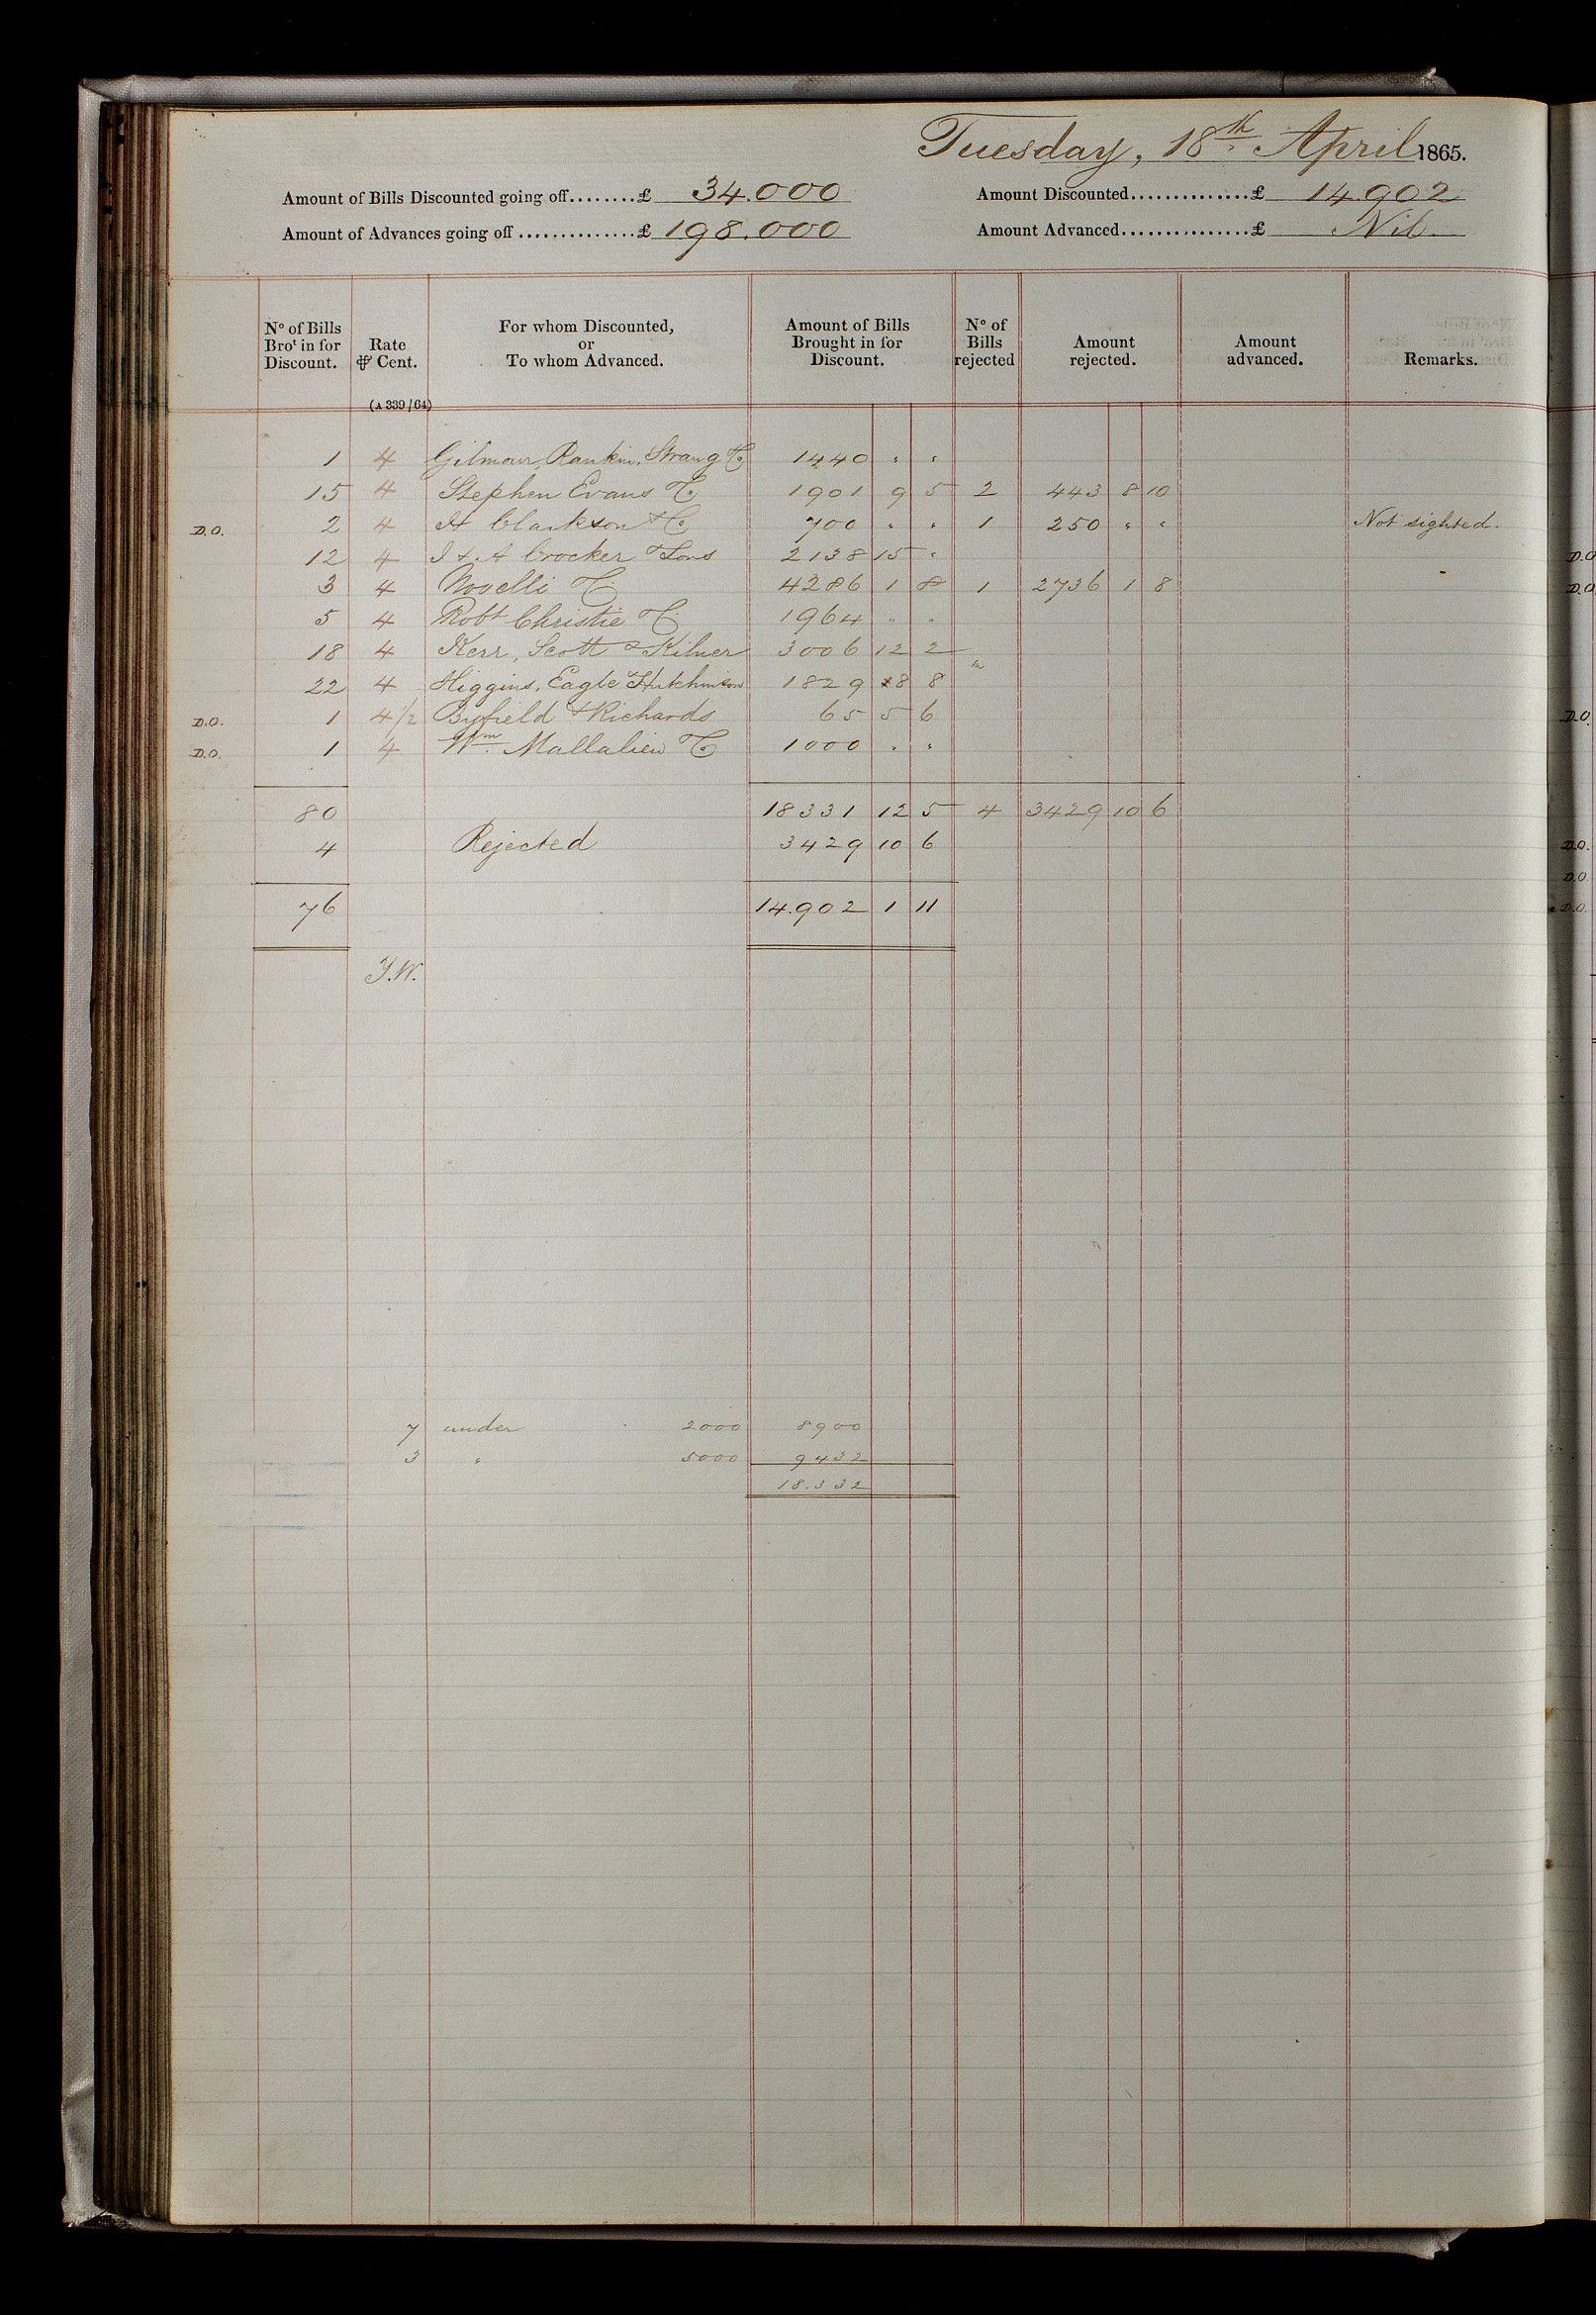 Tuesday, 18th April 1865.
Amount of Bills Discounted going off........£ 34.000 Amount Discounted..............£ 14.902
Amount of Advances going off..............£ 198.000 Amount Advanced...............£ Nil
No of Bills Brot in for Discount. Rate ⅌ Cent. For whom Discounted, or To whom Advanced. Amount of Bills Brought in for Discount. No of Bills rejected Amount rejected. Amount advanced. Remarks.
(A 339/64)
1 4 Gilmour, Rankin, Strang & Co 1440 " "
15 4 Stephen Evans & Co 1901 9 5 2 443 8 10
D.O. 2 4 H Clarkson & Co 700 " " 1 250 " " Not sighted.
12 4 I & A Crocker & Sons 2138 15 "
3 4 Novelli & Co 4286 1 8 1 2736 1 8
5 4 Robt Christie & Co 1964 " "
18 4 Kerr, Scott & Kilner 3006 12 2
22 4 Higgins, Eagle & Hutchinson 1829 8 8
D.O. 1 4½ Byfield & Richards 65 5 6
D.O. 1 4 Wm Mallalieu & Co 1000 " "
80 18331 12 5 4 3429 10 6
4 Rejected 3429 10 6
76 14.902 1 11
7 under 2000 8900
3 " 5000 9432
18.332
D.O.
D.O.
D.O.
D.O.
D.O.
D.O.